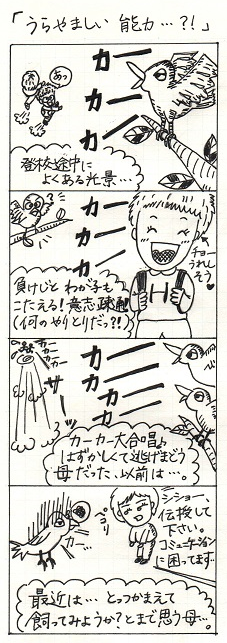 「うらやましい 能力…?!」
カー
カー
カー
あっ
登校途中に
よくある光景…
カー
カー
カー
チョー
うれし
そう
負けじと わが子も
こたえる!意志疎通
(何のやりとりだっ?!
カー
カー
カー
カー
カー
カー
カー
サーッ
カーカー大合唱♪
はずかしくて逃げまどう
母だった、以前は…。
シショー、
伝授して
下さい。
コミュニケーション
に困ってます…
ペコリ
カー…
最近は… とっつかまえて
飼ってみようか?とまで思う母…。